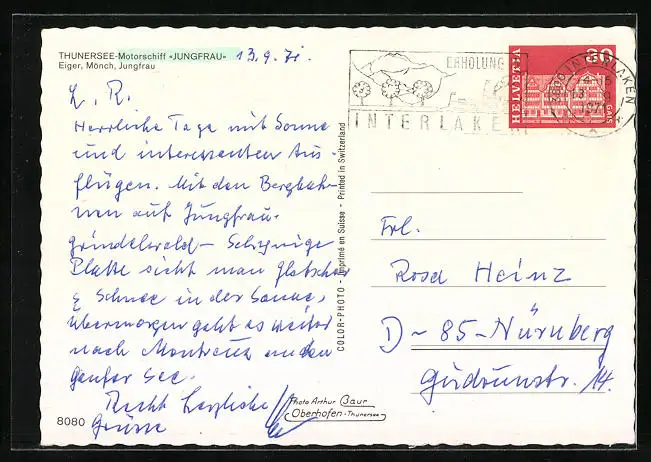 THUNERSEE-Motorschiff «JUNGFRAU» 13.9.71.
Eiger, Mönch, Jungfrau
L. R.
Herrliche Tage mit Sonne
und interessanten Aus-
flügen. Mit den Bergbah-
nen auf Jungfrau-
grindelwald- Schynige
Platte sieht man Gletscher
& Schnee in der Sonne,
übermorgen geht es weiter
nach Montreux an den
Genfer See.
Recht herzliche
Grüsse
8080
COLOR-PHOTO - Imprimé en Suisse - Printed in Switzerland
Photo Arthur Baur
Oberhofen-Thunersee
ERHOLUNG
INTERLAKE
HELVETIA
30
GAIS
INTERLAKEN
Frl.
Rosa Heinz
D-85-Nürnberg
Gudrunstr. 14.